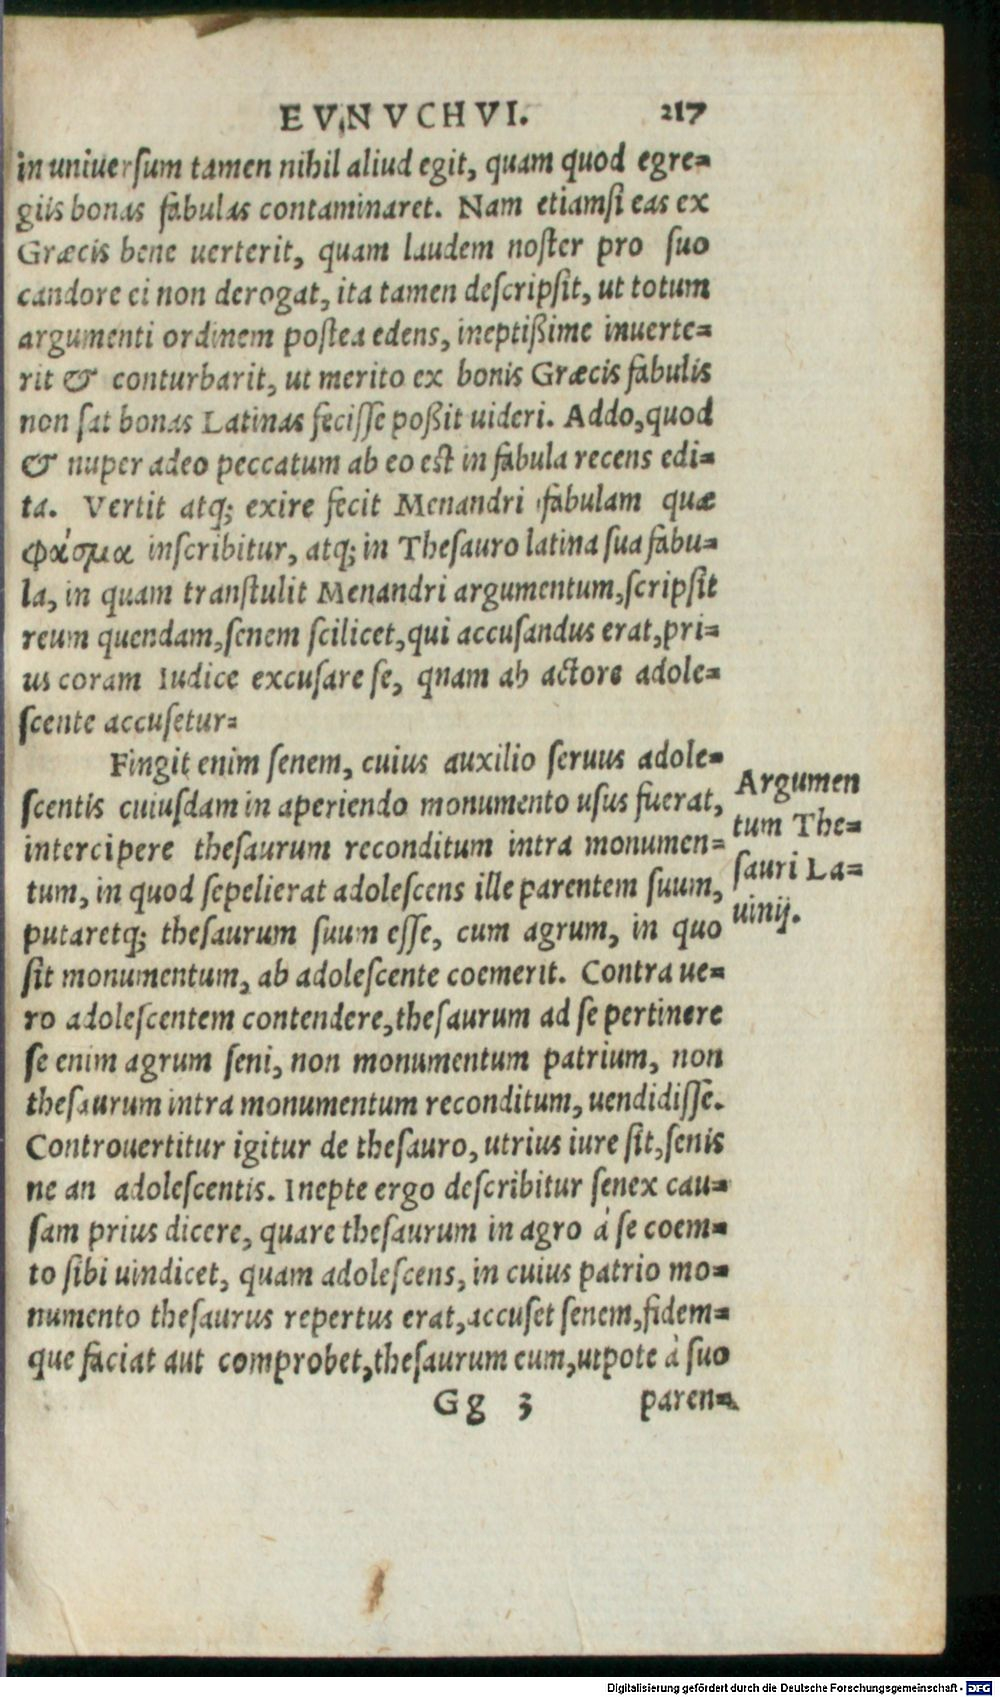 EVNVCHVI. 217
in uniuersum tamen nihil aliud egit, quam quod egre=
giis bonas fabulas contaminaret. Nam etiamsi eas ex
Græcis bene uerterit, quam laudem noster pro suo
candore ei non derogat, ita tamen descripsit, ut totum
argumenti ordinem postea edens, ineptißime inuerte=
rit & conturbarit, ut merito ex bonis Græcis fabulis
non sat bonas Latinas fecisse poßit uideri. Addo, quod
& nuper adeo peccatum ab eo est in fabula recens edi=
ta. Vertit atq; exire fecit Menandri fabulam quæ
φάσμα inscribitur, atq; in Thesauro latina sua fabu=
la, in quam transtulit Menandri argumentum, scripsit
reum quendam, senem scilicet, qui accusandus erat, pri=
us coram Iudice excusare se, qnam ab actore adole=
scente accusetur=
Fingit enim senem, cuius auxilio seruus adole=
scentis cuiusdam in aperiendo monumento usus fuerat,
intercipere thesaurum reconditum intra monumen=
tum, in quod sepelierat adolescens ille parentem suum,
putaretq; thesaurum suum esse, cum agrum, in quo
sit monumentum, ab adolescente coemerit. Contra ue=
ro adolescentem contendere, thesaurum ad se pertinere
se enim agrum seni, non monumentum patrium, non
thesaurum intra monumentum reconditum, uendidisse.
Controuertitur igitur de thesauro, utrius iure sit, senis
ne an adolescentis. Inepte ergo describitur senex cau=
sam prius dicere, quare thesaurum in agro à se coem=
to sibi uindicet, quam adolescens, in cuius patrio mo=
numento thesaurus repertus erat, accuset senem, fidem=
que faciat aut comprobet, thesaurum eum, utpote à suo
Gg 3 paren=
Argumen
tum The=
sauri La=
uinij.
Digitalisierung gefördert durch die Deutsche Forschungsgemeinschaft - DFG